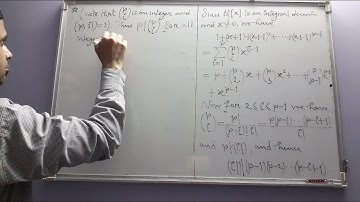 * (note that (p i) is an integer and
(p, i!)=1). Thus p|(p i) for all
integ
Since ℤ[x] is an integral domain
and x≠0, we have
1+(x+1)+(x+1)²+⋯+(x+1)^{p-1}
= Σ_{i=1}^{p} (p i) x^{i-1}
= p+(p 2)x+(p 3)x²+⋯+(p p-1)x^{p-2}
+x^{p-1}
Now for 2≤i≤p-1 we have
(p i) = p!/((p-i)! i!) = p(p-1)⋯(p-i+1)/i!
and p∤i! and hence
(i!)|(p-1)(p-2)⋯(p-i+1)